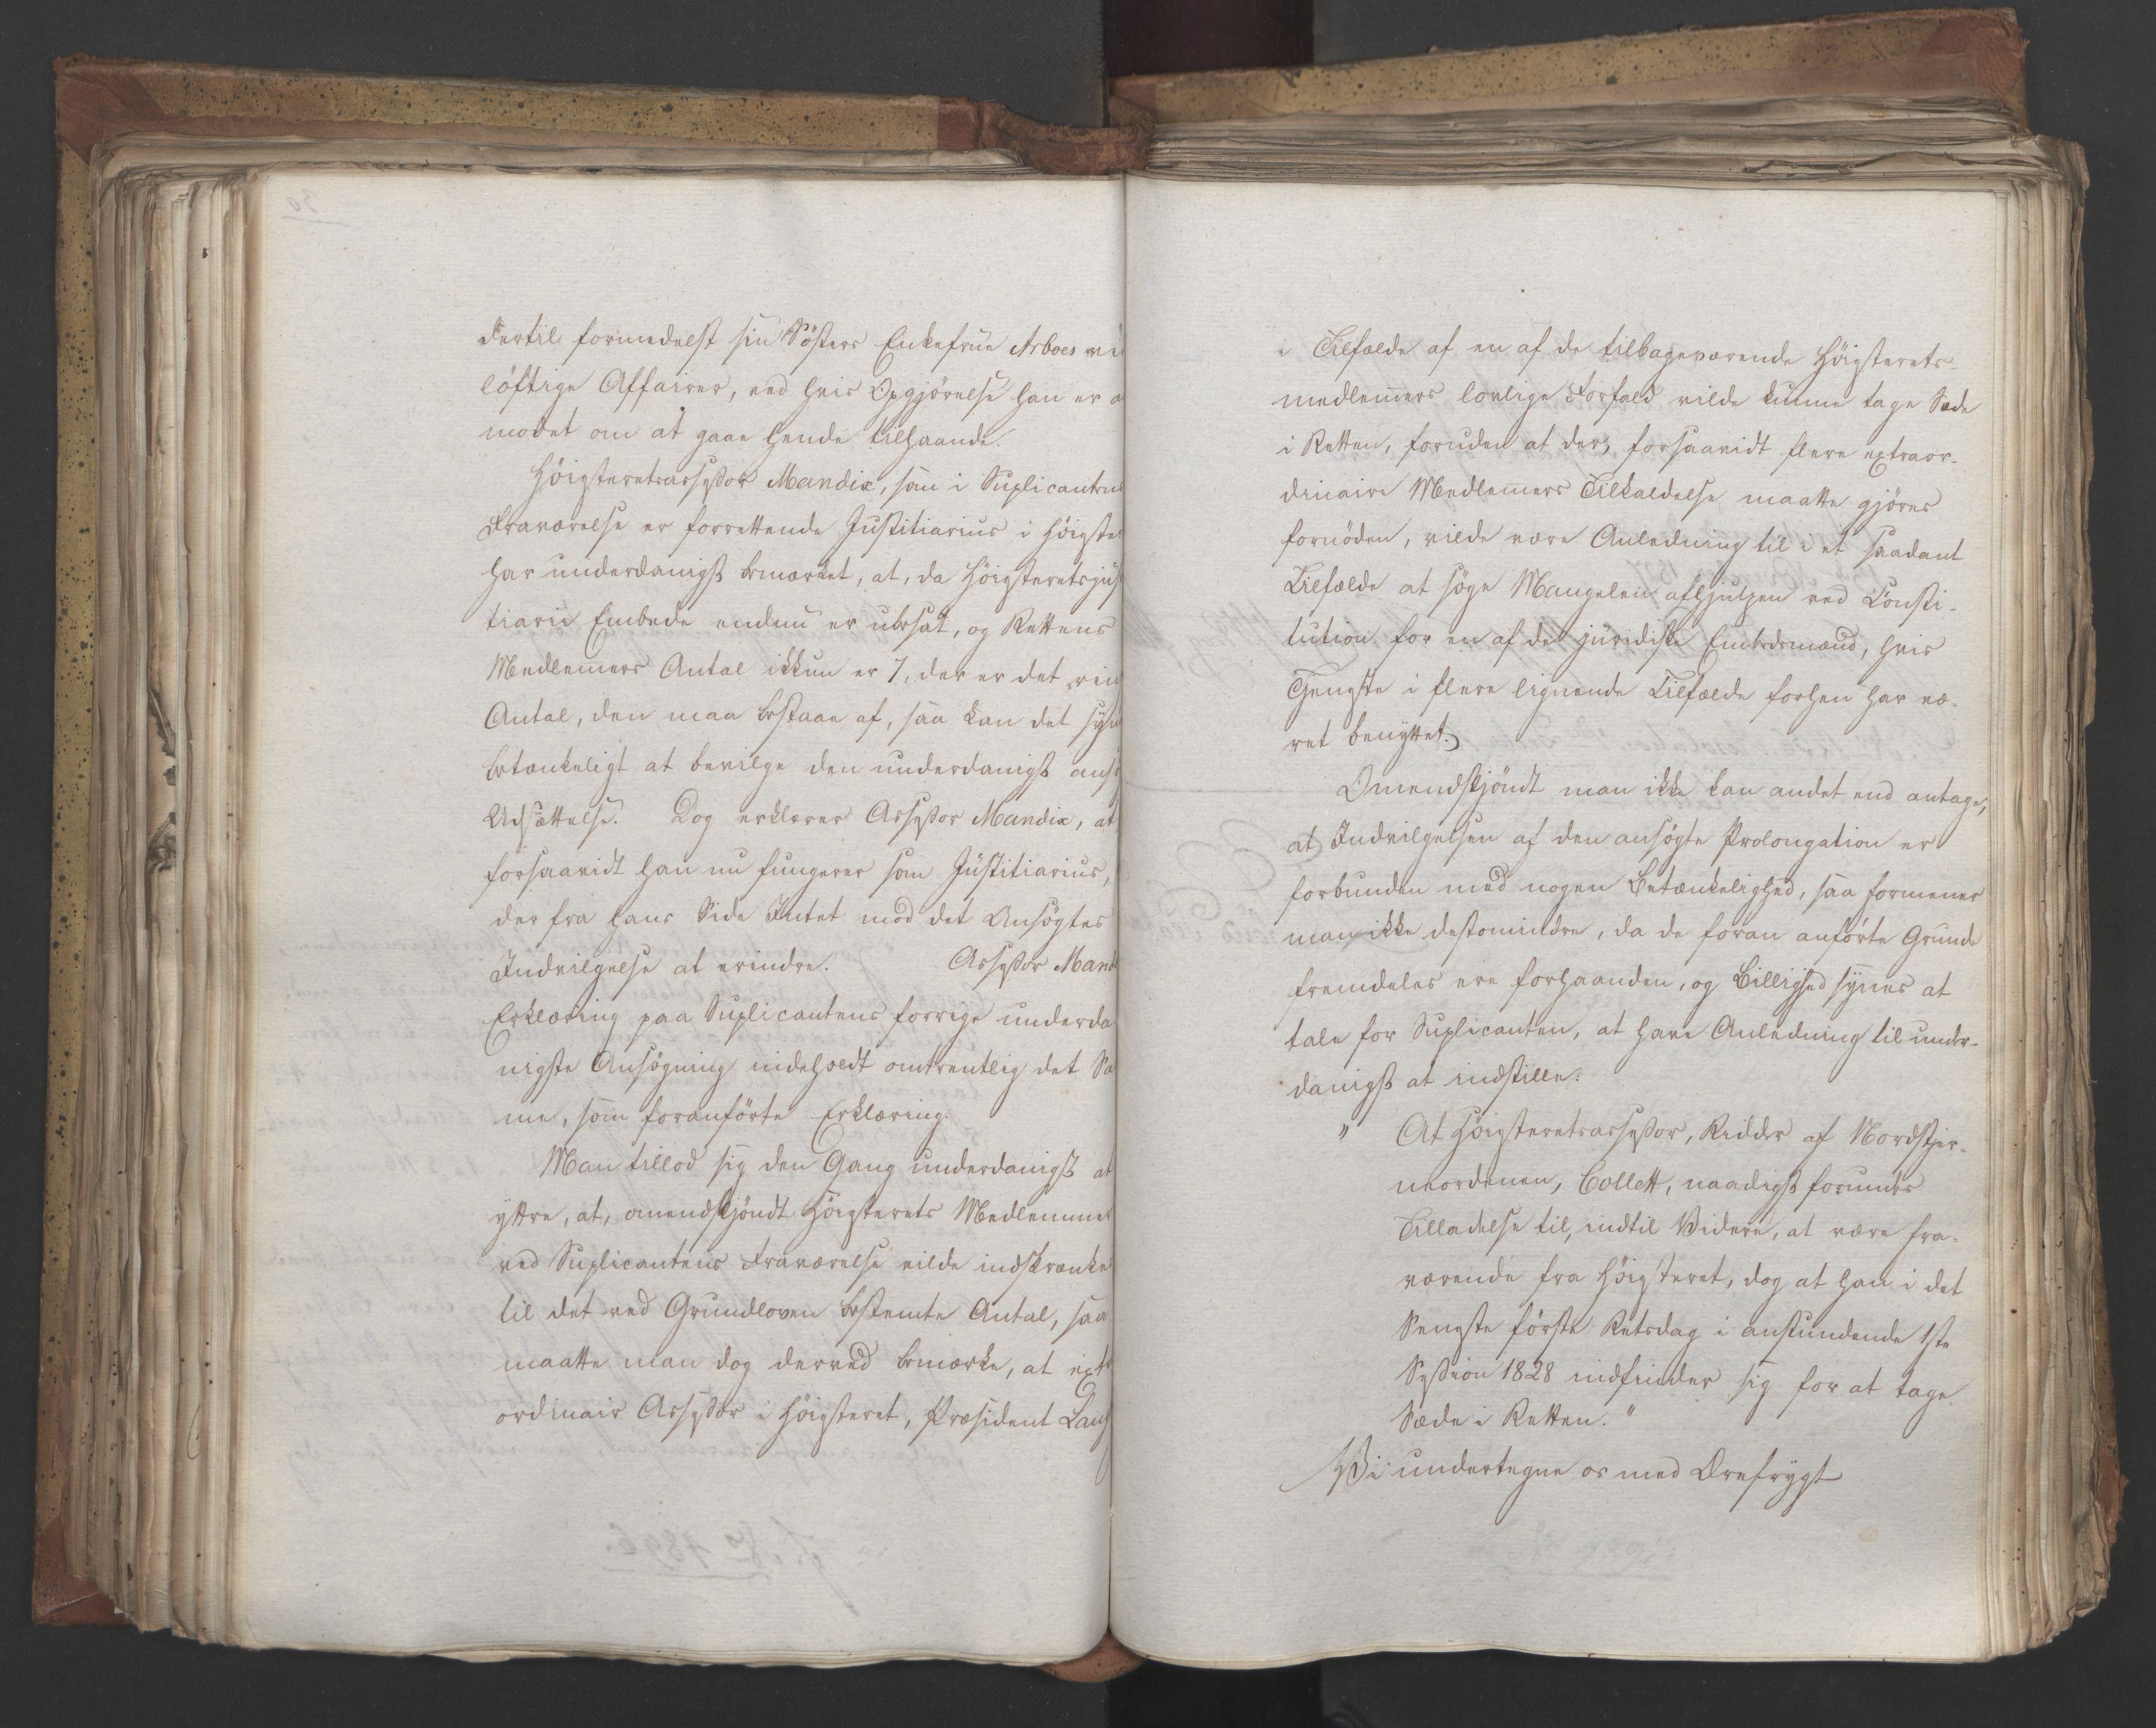 dertil formedelst sin Söster Enkefrue Arboes vi
löftige Affairer, ved hvis Opgjörelse han er a
modet om at gaae hende tilhaande.
Höigsteretsassessor Mandix, som i Suplicantens
Fraværelse er forrettende Justitiarius i Höigste
har underdanigst bemærket, at, da Höigsteretsjus
tiarii Embede endnu er ubesat, og Rettens
Medlemmers Antal ikkun er 7, der er det ring
Antal, den maa bestaae af, saa kan det syn
betænkeligt at bevilge den underdanigst ans
Udsættelse. Dog erklærer Assessor Mandix, at
forsaavidt han nu fungerer som Justitiarius,
der fra hans Side Intet mod det Ansögtes
Indvilgelse at erindre. Assessor Mand
Erklæring paa Suplicantens forrige underda
nigste Ansögning indeholdt omtrentlig det Sa
me, som foranförte Erklæring.
Man tillod sig den Gang underdanigst at
yttre, at, omendskjöndt Höigsterets Medlemmer
ved Suplicantens Fraværelse vilde indskrænkes
til det ved Grundloven bestemte Antal, saa
maatte man dog derved bemærke, at ext
ordinair Assessor i Höigsteret, Præsident Lang
i Tilfælde af en af de tilbageværende Höigsterets-
medlemmers lovlige Forfald vilde kunne tage Sæde
i Retten, foruden at der, forsaavidt flere extraor-
dinaire Medlemmers Tilkaldelse maatte gjöres
fornöden, vilde være Anledning til i et saadant
Tilfælde at söge Mangelen afhjulpen ved Consti-
tution for en af de juridiske Embedsmænd, hvis
Tjeneste i flere lignende Tilfælde forhen har væ-
ret benyttet.
Omendskjöndt man ikke kan andet end antage,
at Indvilgelsen af den ansögte Prolongation er
forbunden med nogen Betænkelighed, saa formener
man ikke destomindre, da de foran anförte Grunde
fremdeles ere forhaanden, og Billighed synes at
tale for Suplicanten, at have Anledning til under-
danigst at indstille:
" At Höigsteretsassessor, Ridder af Nordstjer-
neordenen, Collett, naadigst forundes
Tilladelse til, indtil Videre, at være fra-
værende fra Höigsteret, dog at han i det
Seneste förste Retsdag i anstundende 1ste
Session 1828 indfinder sig for at tage
Sæde i Retten."
Vi undertegne os med Ærefrygt